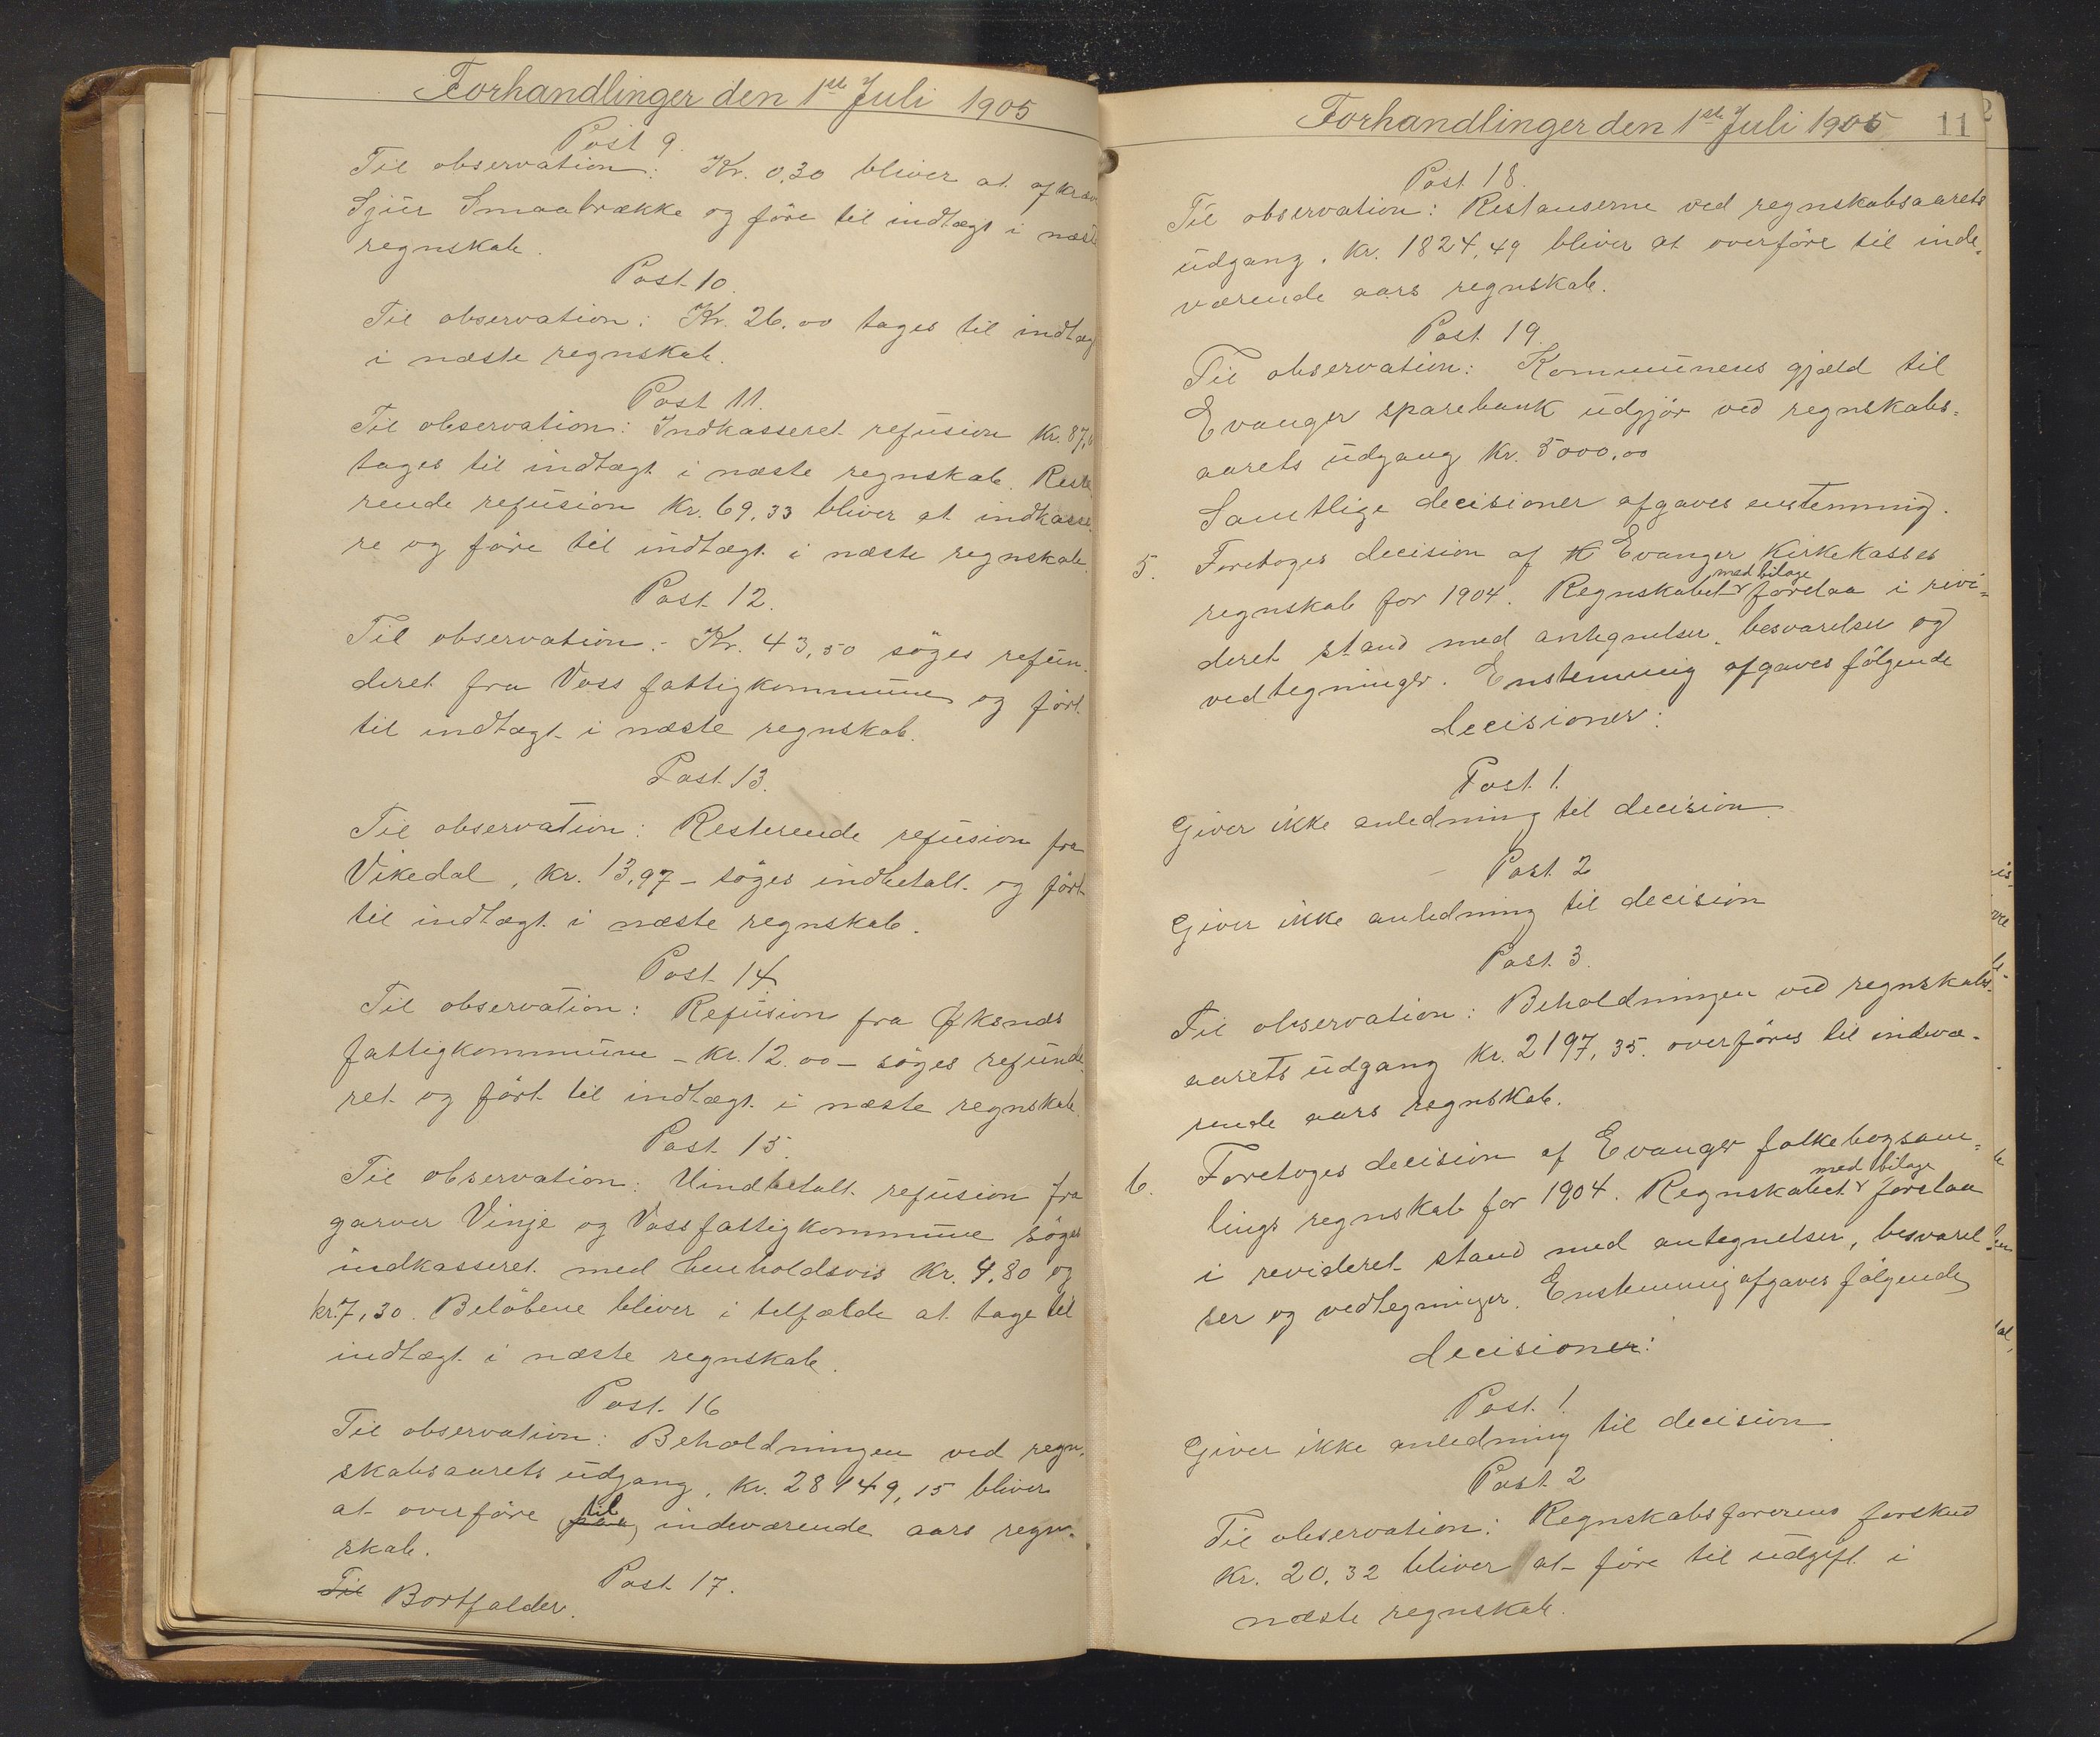 Forhandlinger den 1ste Juli 1905
Post 9.
Til observation: Kr. 0,30 bliver at afkræv
Sjur Smaabrække og före til indtægt i næste
regnskab.
Post 10.
Til observation: Kr. 26,00 tages til indtæg
i næste regnskab.
Post 11.
Til observation: Indkasseret refusion Kr. 87,
tages til indtægt i næste regnskab. Reste
rende refusion Kr. 69,33 bliver at indkasse
re og före til indtægt i næste regnskab.
Post 12.
Til observation: Kr. 43,50 söges refun-
deret fra Voss fattigkommune og fört
til indtægt i næste regnskab.
Post 13.
Til observation: Resterende refusion fra
Vikedal, kr. 13,97 – söges indbetalt og fört
til indtægt i næste regnskab.
Post 14
Til observation: Refusion fra Øksnds
fattigkommune – kr. 12.00 – söges refunde
ret og fört til indtægt i næste regnskab.
Post 15.
Til observation: Uindbetalt refusion fra
garver Vinje og Voss fattigkommune söges
indkasseret med henholdsvis Kr. 4,80 og
kr. 7,30. Belöbene bliver i tilfælde at tage til
indtægt i næste regnskab.
Post 16
Til observation: Beholdningen ved regn-
skabsaarets udgang, kr. 28149,15 bliver
at overföre paa til indeværende aars regn-
skab.
Post 17.
Til Bortfalder.
Forhandlinger den 1ste Juli 1905 11
Post 18.
Til observation: Restanserne ved regnskabsaarets
udgang, kr. 1824,49 bliver at overföre til inde-
værende aars regnskab.
Post 19.
Til observation: Kommunens gjæld til
Evanger sparebank udgjör ved regnskabs-
aarets udgang Kr. 5000,00
Samtlige decisioner afgaves enstemmig.
5. Foretoges decision af K Evanger Kirkekasses
regnskab for 1904. Regnskabet med bilage forelaa i rivi-
deret stand med antegnelser, besvarelser og
vedtegninger. Enstemmig afgaves fölgende
decisioner:
Post 1.
Giver ikke anledning til decision.
Post 2
Giver ikke anledning til decision
Post 3.
Til observation: Beholdningen ved regnskabs-
aarets udgang Kr. 2197,35. overföres til indevæ-
rende aars regnskab.
6. Foretoges decision af Evanger folkebogsam-
lings regnskab for 1904. Regnskabet med bilage forelaa
i revideret stand med antegnelser, besvarel-
ser og vedtegninger. Enstemmig afgaves fölgende
decisioner:
Post 1.
Giver ikke anledning til decision.
Post 2
Til observation: Regnskabsförerens forskud
Kr. 20,32 bliver at före til udgift i
næste regnskab.